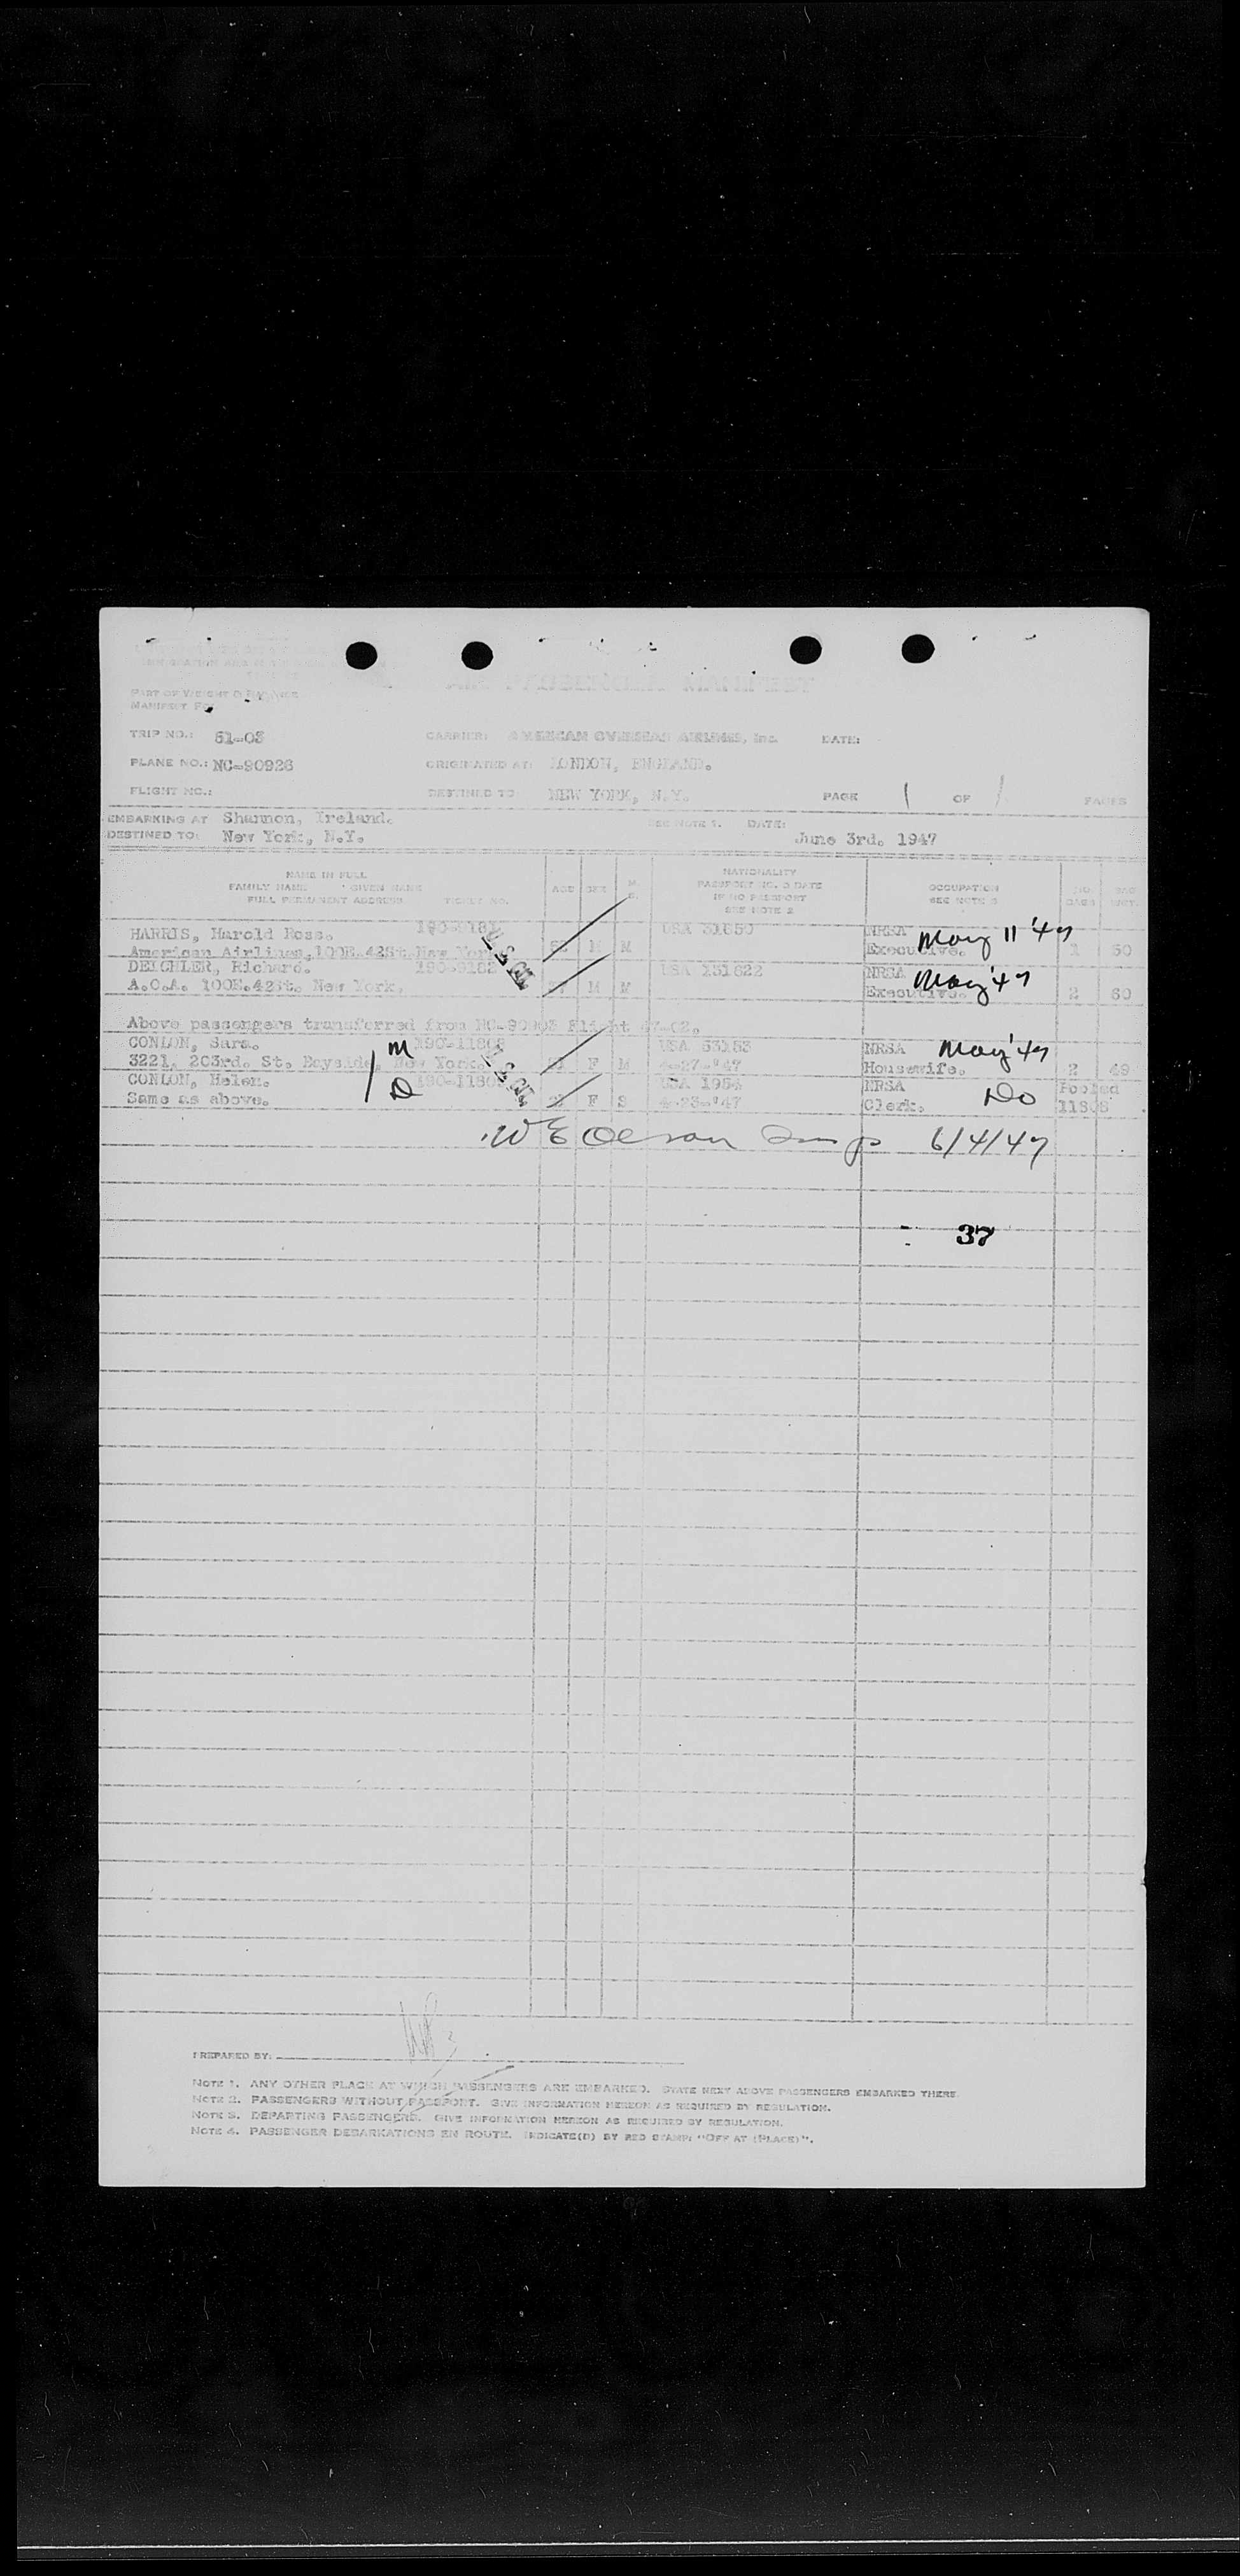 PART OF WEIGHT &
MANIFEST FOR
TRIP NO.: 51-03 CARRIER: AMERICAN OVERSEAS AIRLINES, Inc. DATE:
PLANE NO.: NC-90926 ORIGINATED AT: LONDON, ENGLAND.
FLIGHT NO.: DESTINED TO NEW YORK, N.Y. PAGE 1 OF 1 PAGES
EMBARKING AT Shannon, Ireland. SEE NOTE 1. DATE:
DESTINED TO: New York, N.Y. June 3rd. 1947
NAME IN FULL
FAMILY NAME GIVEN NAME
FULL PERMANENT ADDRESS. TICKET NO.
AGE SEX M. S.
NATIONALITY
PASSPORT NO. & DATE
IF NO PASSPORT
SEE NOTE 2
OCCUPATION
SEE NOTE 3
NO. BAGS BAG WGT.
HARRIS, Harold Ross. USA 31650 NRSA May 11 '47
American Airlines, 100E.42St. New York M M Executive. 1 50
DEICHLER, Richard. 190-9182 USA 131622 NRSA May '47
A.O.A. 100E.42St. New York. M M Executive. 2 60
Above passengers transferred from NC-90903 Flight 47-02.
CONLON, Sara. M 190-11808 USA 63153 NRSA May '47
3221, 203rd. St. Bayside, New York. F M 4-27-'47 Housewife. 2 49
CONLON, Helen. D USA 1954 NRSA Do Pooled
Same as above. F S 4-23-'47 Clerk. 11808
W E Olsson Insp 6/4/47
37
PREPARED BY:
NOTE 1. ANY OTHER PLACE AT WHICH PASSENGERS ARE EMBARKED. STATE NEXT ABOVE PASSENGERS EMBARKED THERE.
NOTE 2. PASSENGERS WITHOUT PASSPORT. GIVE INFORMATION HEREON AS REQUIRED BY REGULATION.
NOTE 3. DEPARTING PASSENGERS. GIVE INFORMATION HEREON AS REQUIRED BY REGULATION.
NOTE 4. PASSENGER DEBARKATIONS EN ROUTE. INDICATE(D) BY RED STAMP: "OFF AT (PLACE)".